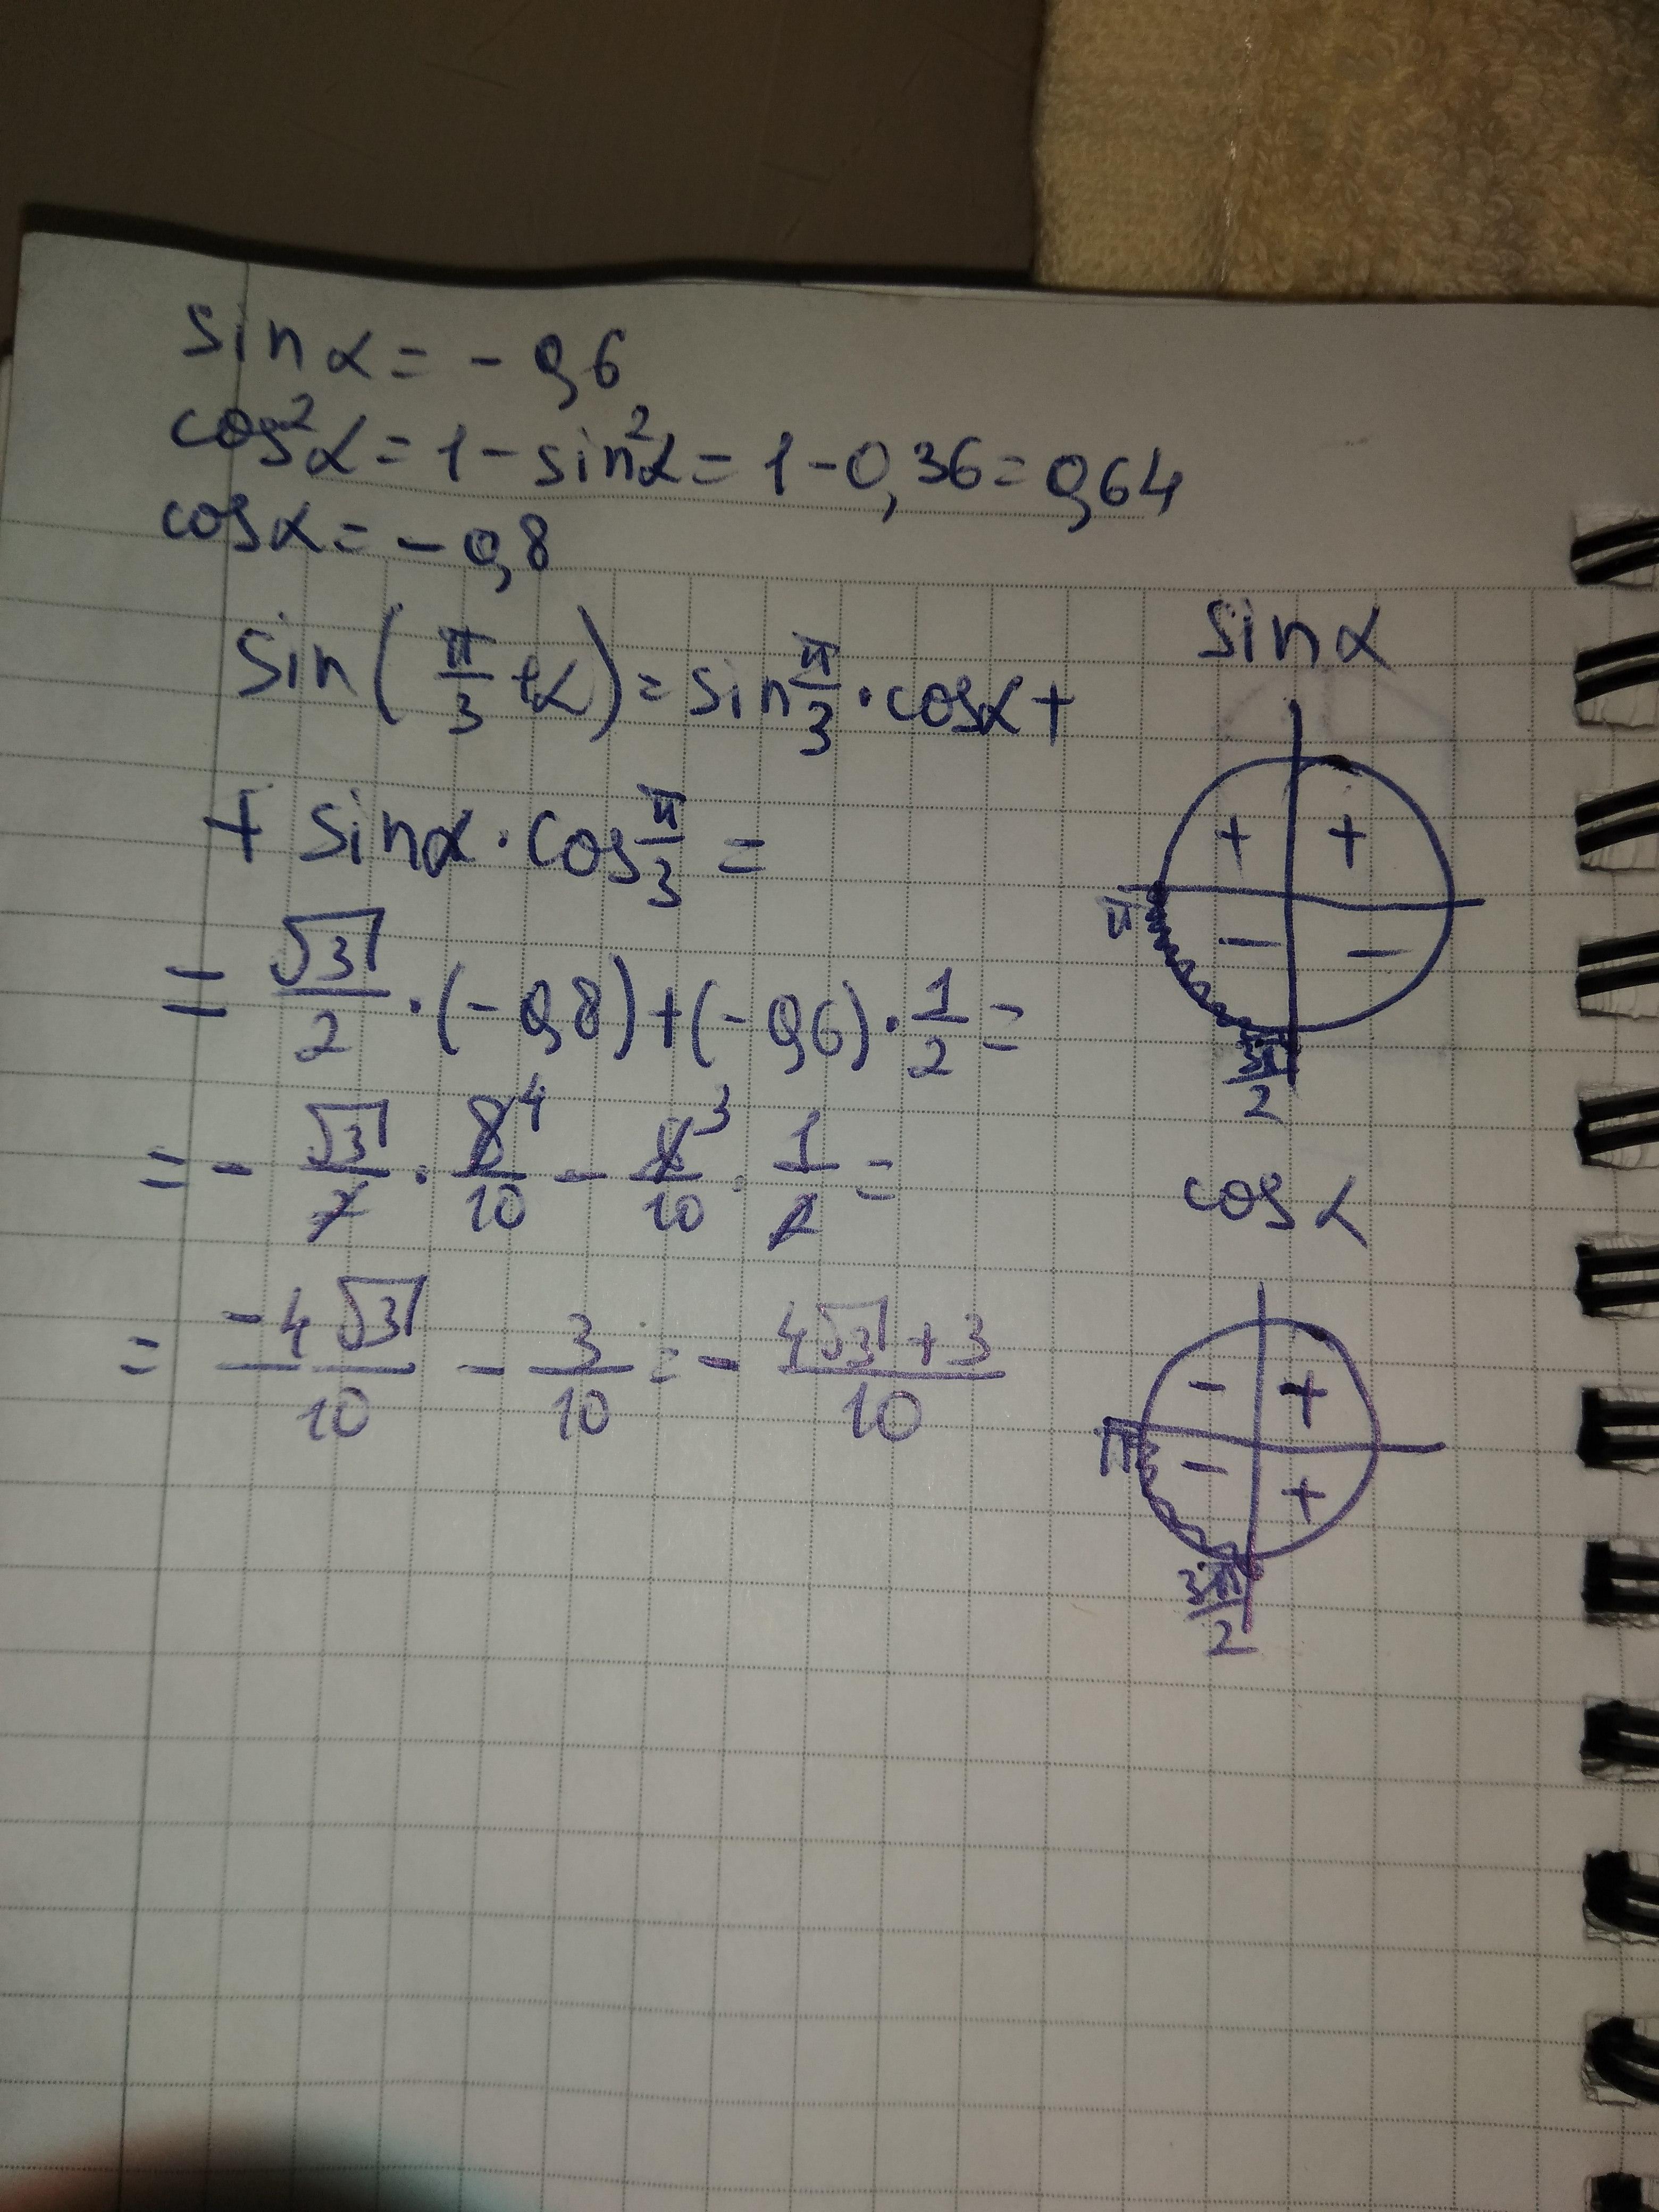 sin α = - 0,6
cos²α = 1 - sin²α = 1 - 0,36 = 0,64
cos α = - 0,8
sin(π/3 + α) = sin π/3 · cos α +
+ sin α · cos π/3 =
= √3/2 · (- 0,8) + (- 0,6) · 1/2 =
= - √3/2 · 8/10 ⁴ - 6/10 ³ · 1/2 =
= -4√3/10 - 3/10 = - 4√3 + 3/10
sin α
+ +
π
- -
3π/2
cos α
- +
π
- +
3π/2